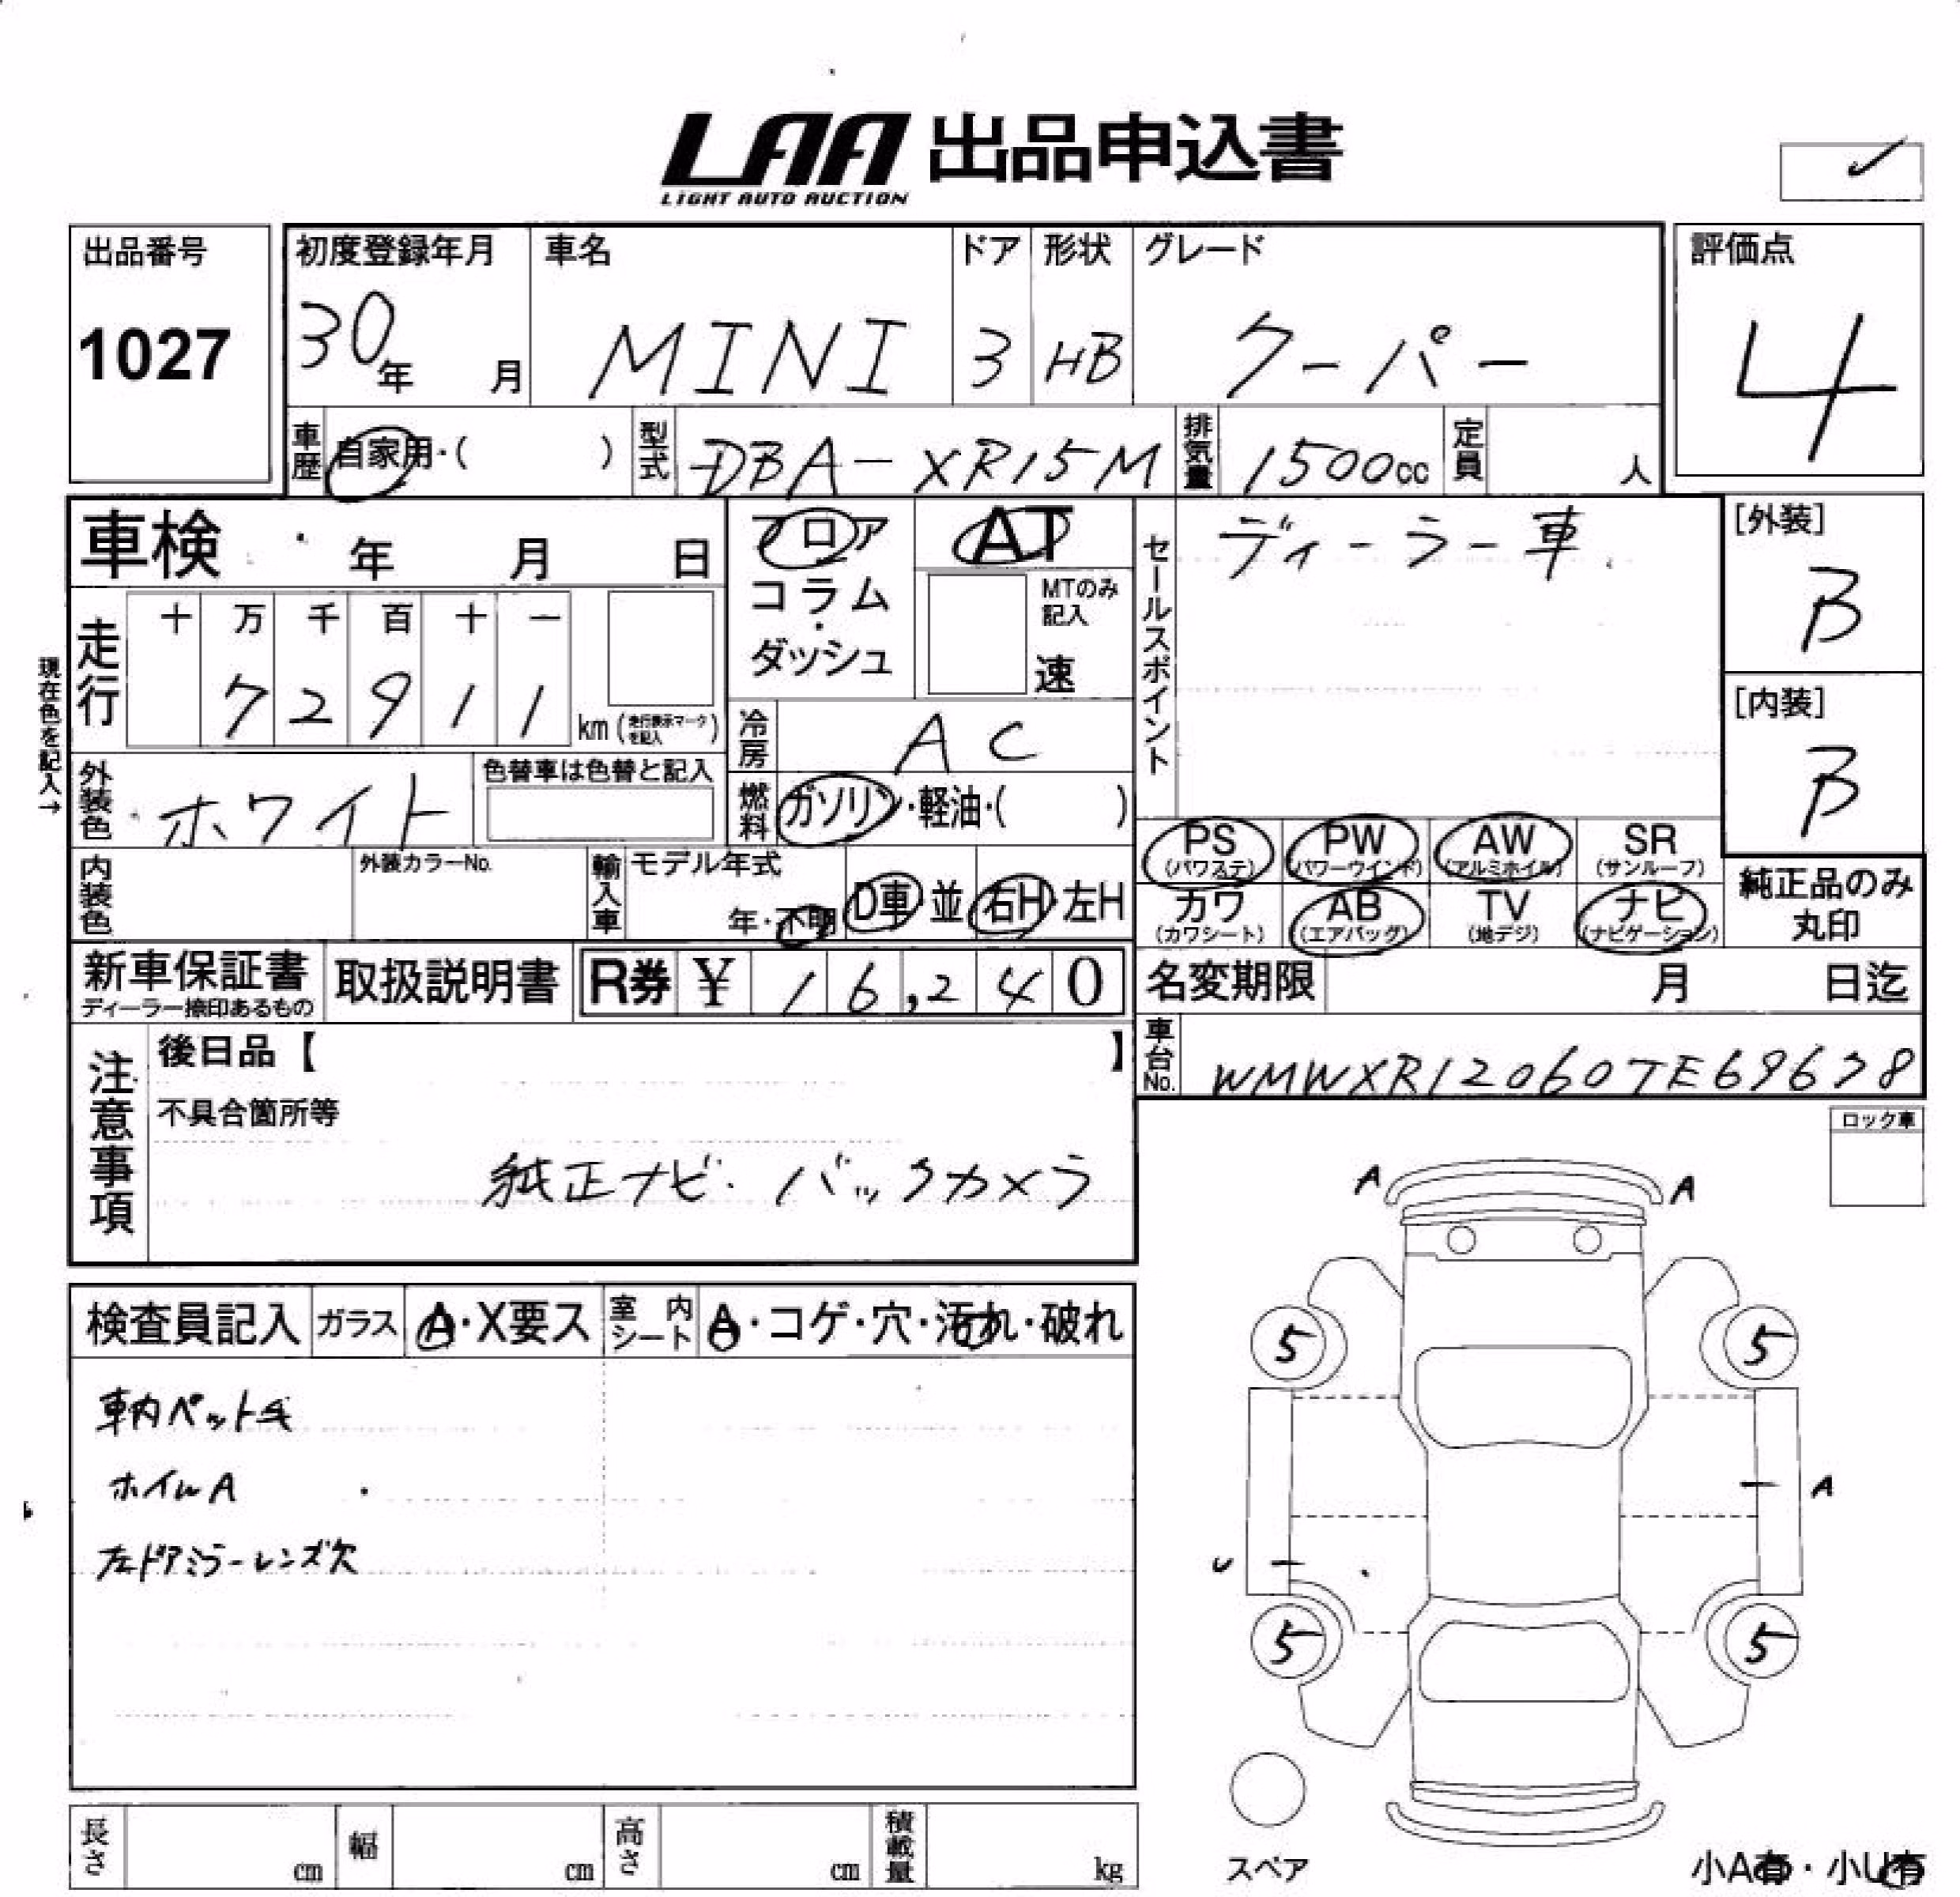 LAA 出品申込書
LIGHT AUTO AUCTION
出品番号
1027
初度登録年月
30年 月
車名
MINI
ドア
3
形状
HB
グレード
クーパー
評価点
4
車歴
自家用・( )
型式
DBA-XR15M
排気量
1500cc
定員
人
車検 年 月 日
フロア
コラム
・
ダッシュ
AT
MTのみ
記入
速
セールスポイント
ディーラー車
[外装]
B
[内装]
B
現在色を記入→
走行
十 万 千 百 十 一
7 2 9 1 1
km (走行表示マークを記入)
冷房
AC
外装色
ホワイト
色替車は色替と記入
燃料
ガソリン・軽油・( )
PS
(パワステ)
PW
(パワーウインド)
AW
(アルミホイル)
SR
(サンルーフ)
内装色
外装カラーNo.
輸入車
モデル年式
年・不明
D車・並
右H・左H
カワ
(カワシート)
AB
(エアバッグ)
TV
(地デジ)
ナビ
(ナビゲーション)
純正品のみ
丸印
新車保証書
ディーラー捺印あるもの
取扱説明書
R券 ¥ 16,240
名変期限 月 日迄
注意事項
後日品【 】
不具合箇所等
純正ナビ・バックカメラ
車台No.
WMWXR12060TE69638
ロック車
A A
検査員記入
ガラス
A・X要ス
室内シート
A・コゲ・穴・汚れ・破れ
車内ペット毛
ホイルA
左ドアミラーレンズ欠
5 5
A
U
5 5
スペア
長さ cm
幅 cm
高さ cm
積載量 kg
小A有・小U有